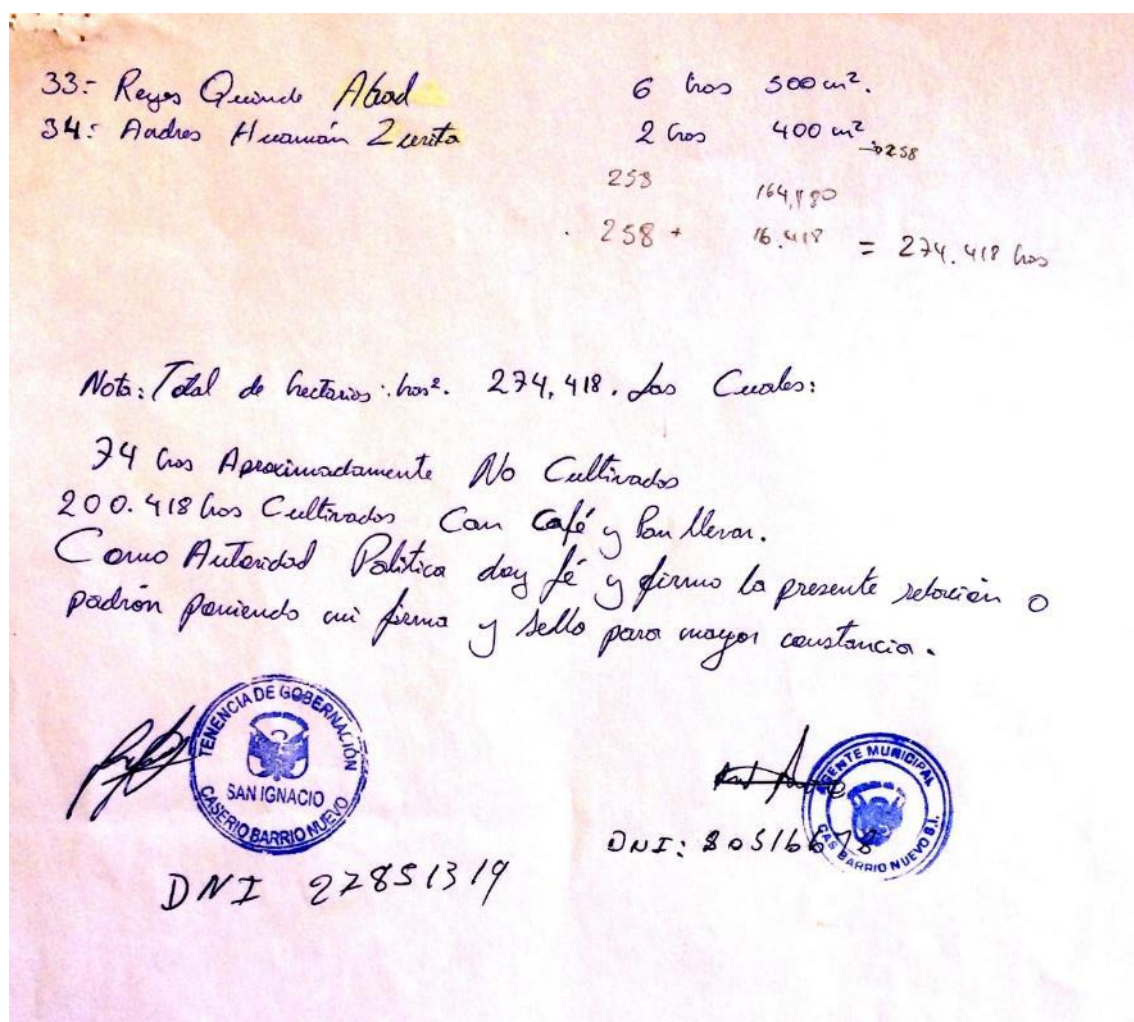 33:- Reyes Quinde Abad 6 has 500 m².
34: Andres Huamán Zurita 2 has 400 m²
→258
258 164,180
258 + 16.418 = 274.418 has
Nota: Total de hectarias: has². 274,418. Las Cuales:
74 has Aproximadamente No Cultivados
200.418 has Cultivados Con Café y Pan llevar.
Como Autoridad Política doy fé y firmo la presente relación o
padrón poniendo mi firma y sello para mayor constancia.
TENENCIA DE GOBERNACIÓN
SAN IGNACIO
CASERIO BARRIO NUEVO
DNI 27851319
AGENTE MUNICIPAL
CAS BARRIO NUEVO S.I.
DNI: 80516678